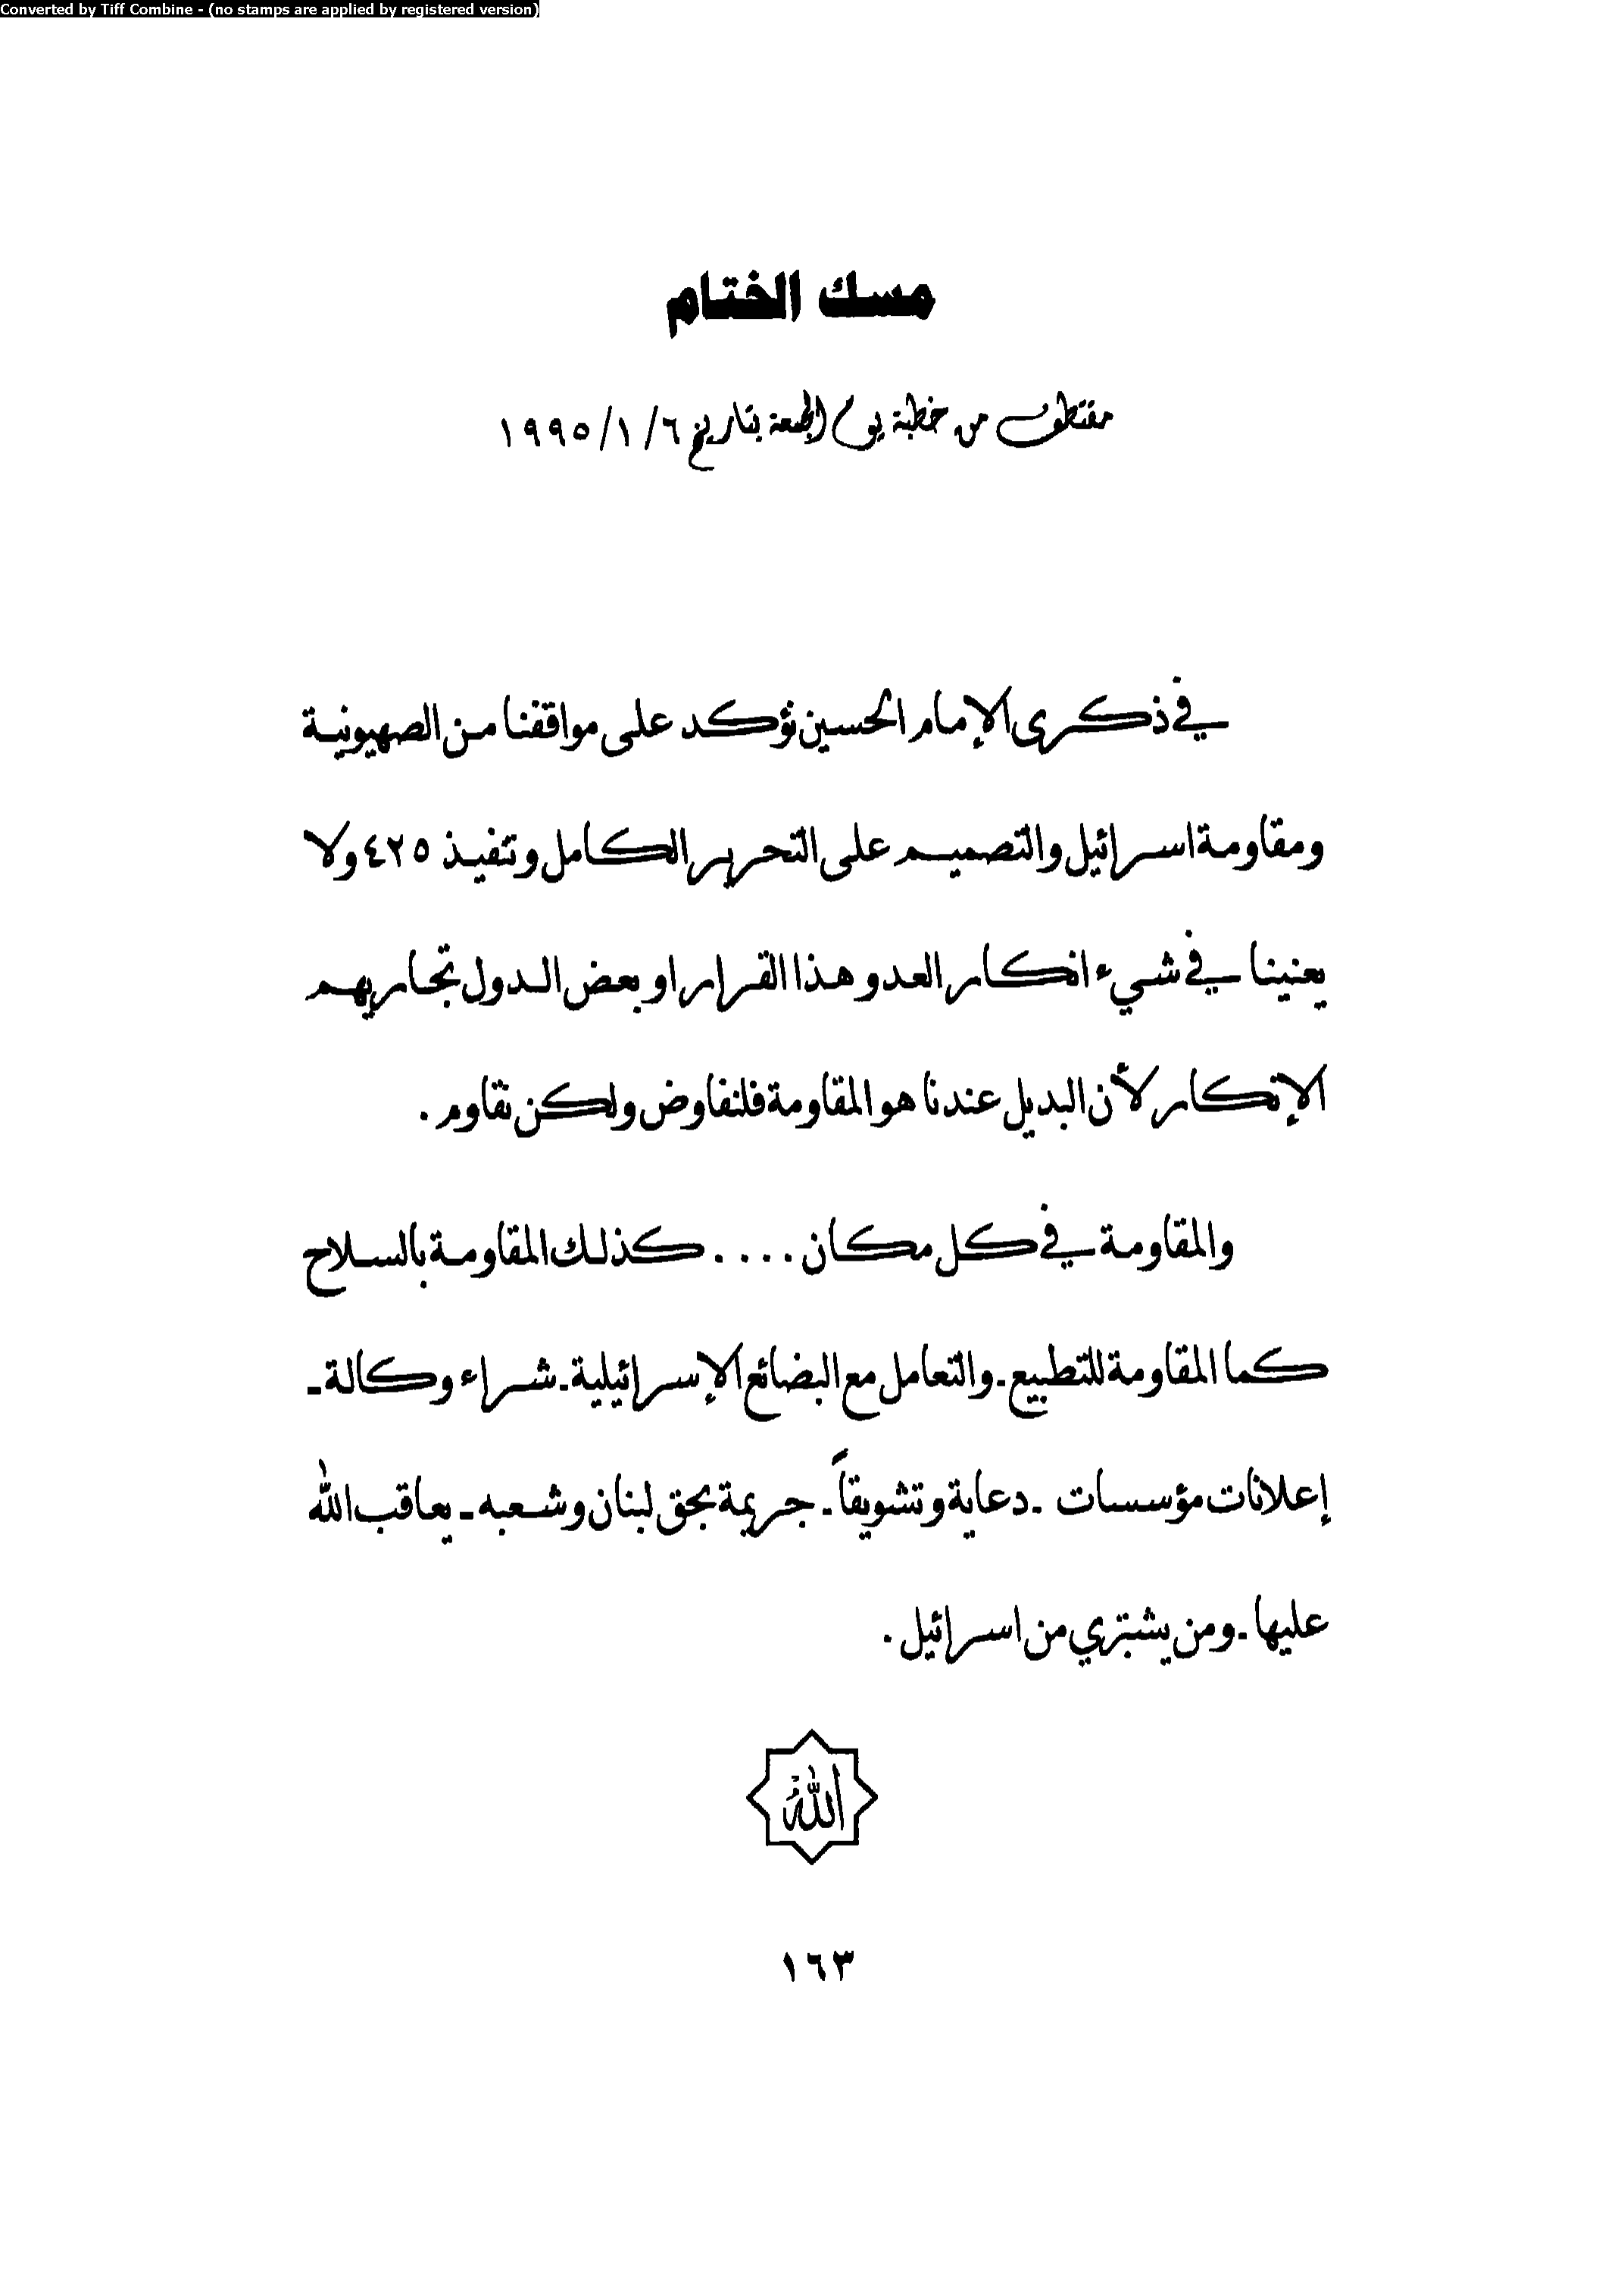 Converted by Tiff Combine - (no stamps are applied by registered version)
مسك الختام
مقتطف من خطبة يوم الجمعة بتاريخ ١٩٩٥/١/٦
في ذكرى الإمام الحسين نؤكد على مواقفنا من الصهيونية
ومقاومة اسرائيل والتصميم على التحرير الكامل وتنفيذ ٤٢٥ ولا
يعنينا في شيء انكار العدو هذا القرار او بعض الدول تجاريهم
الإنكار لأن البديل عندنا هو المقاومة فلنفاوض ولكن نقاوم .
والمقاومة في كل مكان .... كذلك المقاومة بالسلاح
كما المقاومة للتطبيع ـ والتعامل مع البضائع الإسرائيلية ـ شراء وكالة ـ
إعلانات مؤسسات ـ دعاية وتشويقاً ـ جريمة بحق لبنان وشعبه ـ يعاقب الله
عليها ـ ومن يشتري من اسرائيل .
الله
١٦٣